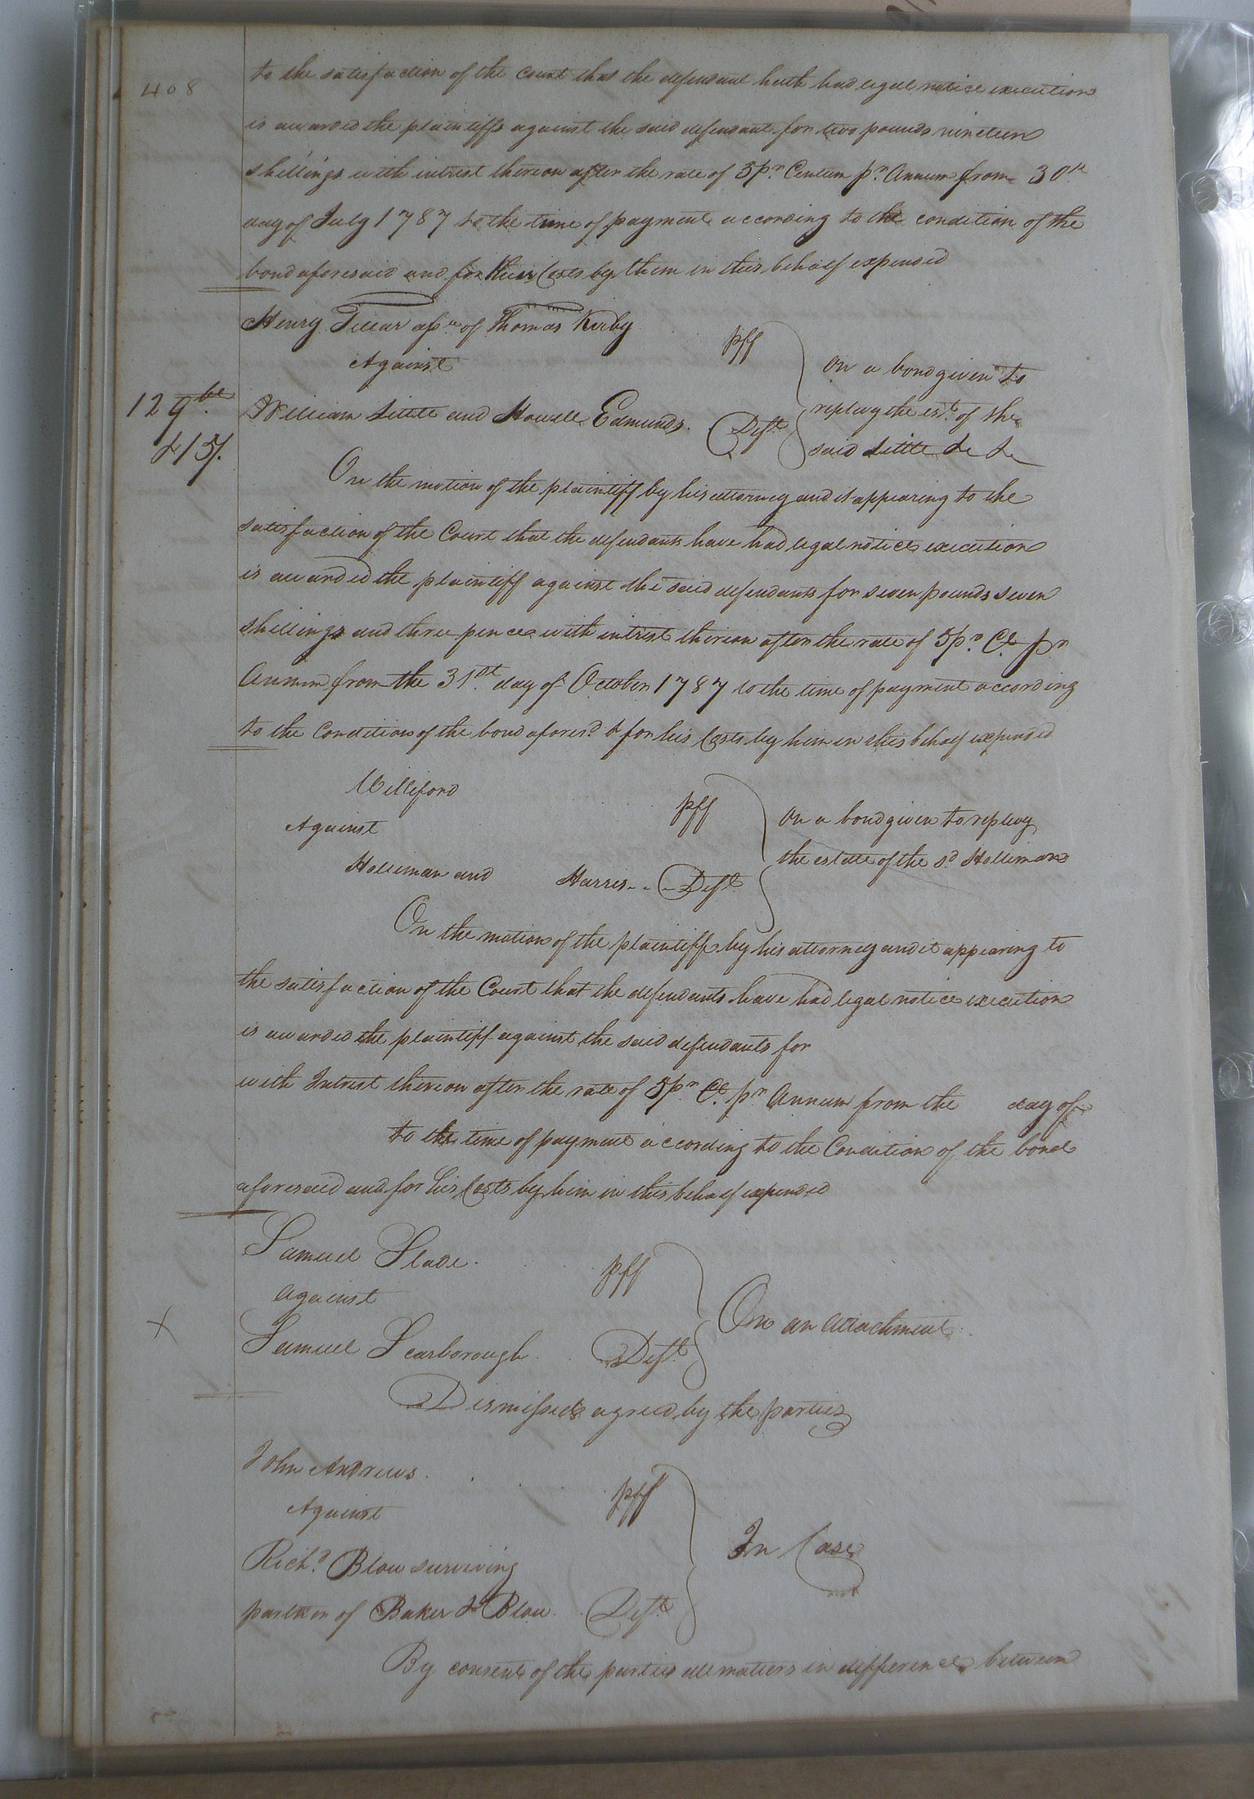 408
to the satisfaction of the Court that the defendant hath had legal notice execution
is awarded the plaintiffs against the said defendant for two pounds nineteen
shillings with intrest thereon after the rate of 5 pr Centum pr Annum from 30th
day of July 1787 to the time of payment according to the condition of the
bond aforesaid and for their Costs by them in this behalf expended
Henry Tillar assee of Thomas Kirby pff
Against
William Little and Howell Edmunds. Defts
on a bond given to
replevy the estt of the
said Little &c &c
129
£15/.
On the motion of the plaintiff by his attorney and it appearing to the
satisfaction of the Court that the defendants have had legal notice execution
is awarded the plaintiff against the said defendants for seven pounds seven
shillings and three pence with intrest thereon after the rate of 5 pr Ct pr
Annum from the 31st day of October 1787 to the time of payment according
to the Condition of the bond aforesd & for his Costs by him in this behalf expended
Williford pff
Against
Holliman and Harris - - Defts
on a bond given to replevy
the estate of the sd Holliman
On the motion of the plaintiff by his attorney and it appearing to
the satisfaction of the Court that the defendants have had legal notice execution
is awarded the plaintiff against the said defendants for
with Intrest thereon after the rate of 5 pr Ct pr Annum from the day of
to the time of payment according to the Condition of the bond
aforesaid and for his Costs by him in this behalf expended
Samuel Slade. pff
against
Samuel Scarborough Deft
On an attachment
X
Dismissed agreed by the parties
John Andrews. pff
Against
Richd Blow surviving
partner of Baker & Blow. Deft
In Case
By consent of the parties all matters in difference between